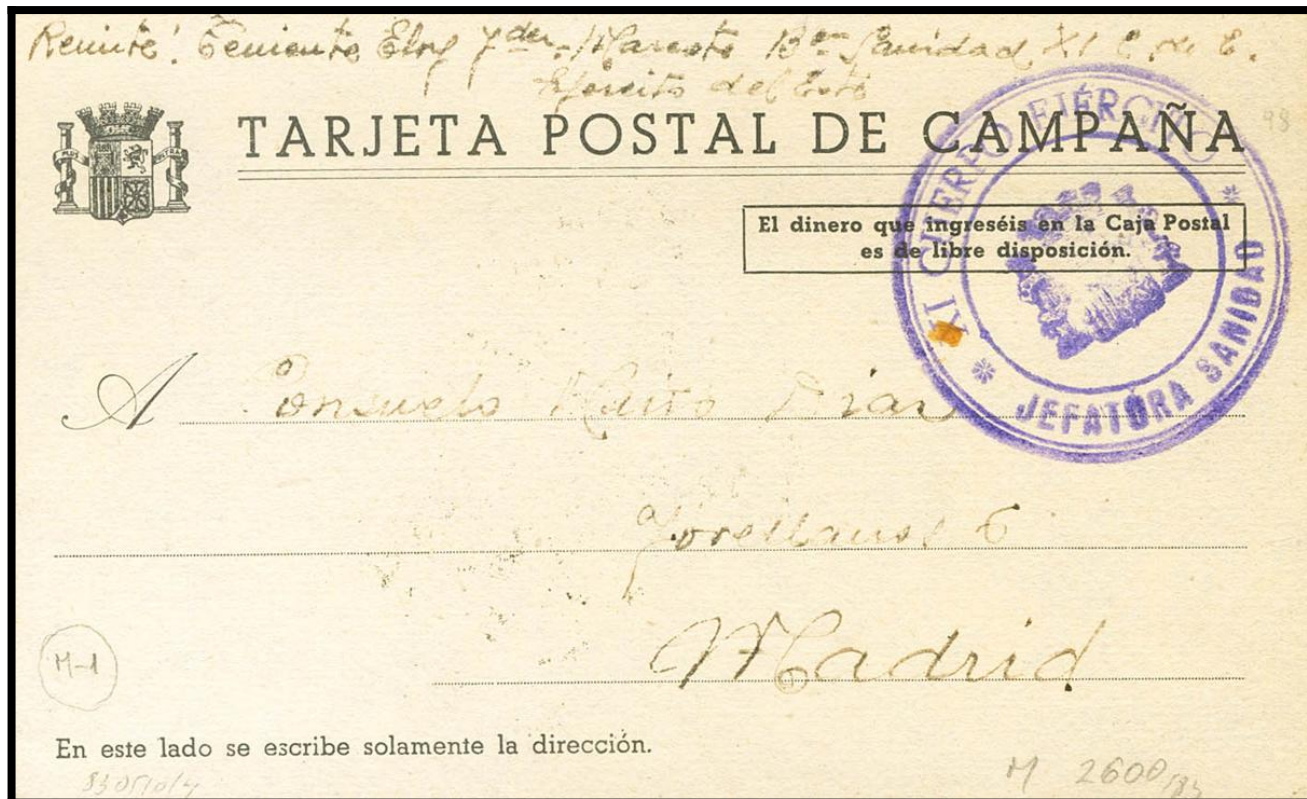 Remite: Teniente Eloy Maroto Bon Sanidad XI C. de E.
Ejército del Este
TARJETA POSTAL DE CAMPAÑA
98
El dinero que ingreséis en la Caja Postal
es de libre disposición.
XI CUERPO EJÉRCITO
* JEFATURA SANIDAD *
A Consuelo Díaz
Jovellanos 6
Madrid
M-1
En este lado se escribe solamente la dirección.
M 2600